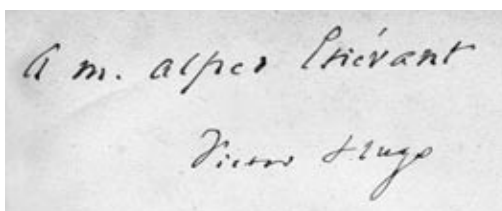 A m. alfred Etiévant
Victor Hugo